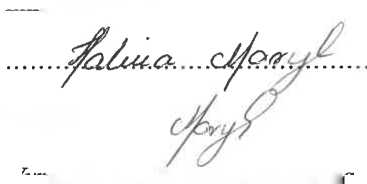 Halina Maryl
Maryl